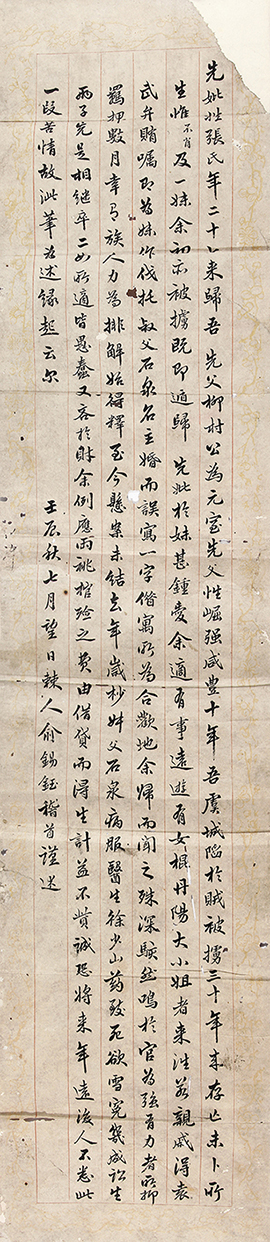 先妣姓張氏年二十以來歸吾 先父柳村公為元室先父性崛强咸豊十年吾虞城陷於賊被擄三十年来存亡未卜所
生惟不肖及一妹余初亦被擄既即遁歸 先妣於妹甚鍾愛余適有事遠遊有女棍丹陽大小姐者来往若親戚得袁
武弁賄囑即為妹作伐托叔父石泉名主婚而誤寫一字借寓所為合歡地余歸而聞之殊深駭然鳴於官為强有力者所抑
羈押數月幸有族人力為排解始得釋至今懸案未結去年歲杪叔父石泉病服醫生徐少山葯致死欲雪寃幾成訟生
兩子先是相継卒二女所適皆愚蠢又吝於財余例應兩祧棺殮之費由借貸而得生計益不貲誠恐将来年遠後人不悉此
一段苦情故泚筆為述緣起云尔
壬辰秋七月望日棘人俞錫鈺稽首謹述